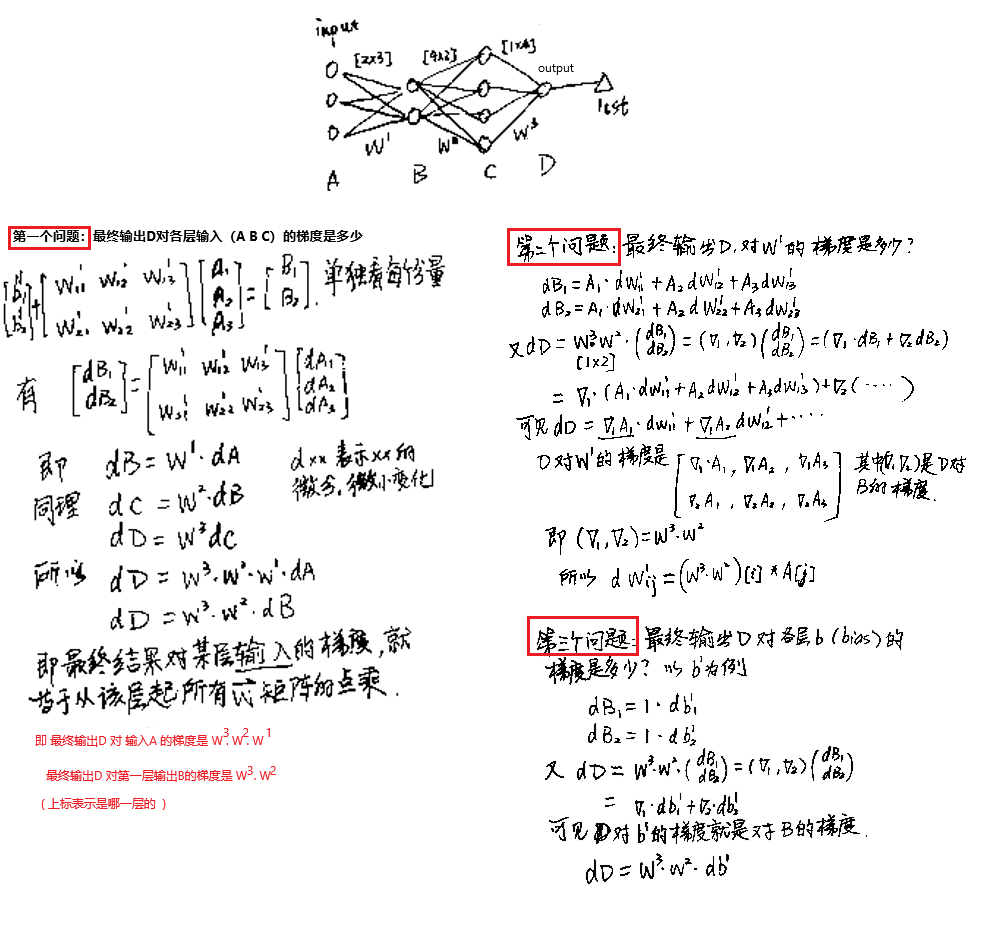 input
[2x3] [4x2] [1x4]
output
lost
W¹ W² W³
A B C D
第一个问题：最终输出D对各层输入（A B C）的梯度是多少
[b₁¹ b₂¹] + [W₁₁¹ W₁₂¹ W₁₃¹ [A₁ = [B₁ 单独看每分量
W₂₁¹ W₂₂¹ W₂₃¹] A₂ A₃] B₂].
有 [dB₁ = [W₁₁¹ W₁₂¹ W₁₃¹ [dA₁
dB₂] W₂₁¹ W₂₂¹ W₂₃¹] dA₂ dA₃]
即 dB = W¹·dA dxx 表示xx的
同理 dC = W²·dB 微分，微小变化
dD = W³dC
所以 dD = W³·W²·W¹·dA
dD = W³·W²·dB
即最终结果对某层输入的梯度，就
等于从该层起所有W矩阵的点乘.
即 最终输出D 对 输入A 的梯度是 W³. W². W¹
最终输出D 对第一层输出B的梯度是 W³. W²
（上标表示是哪一层的 ）
第二个问题：最终输出D，对W¹的梯度是多少？
dB₁ = A₁·dW₁₁¹ + A₂dW₁₂¹ + A₃dW₁₃¹
dB₂ = A₁·dW₂₁¹ + A₂dW₂₂¹ + A₃dW₂₃¹
又dD = W³W²·(dB₁ dB₂) = (∇₁,∇₂)(dB₁ dB₂) = (∇₁·dB₁ + ∇₂dB₂)
[1x2]
= ∇₁·(A₁·dW₁₁¹ + A₂dW₁₂¹ + A₃dW₁₃¹) + ∇₂(·····)
可见 dD = ∇₁A₁·dW₁₁¹ + ∇₁A₂dW₁₂¹ + ····
D对W¹的梯度是 [∇₁·A₁, ∇₁A₂, ∇₁A₃ 其中(∇₁,∇₂)是D对
∇₂A₁, ∇₂A₂, ∇₂A₃] B的梯度.
即 (∇₁,∇₂) = W³·W²
所以 dW¹ij = (W³·W²)[i] * A[j]
第三个问题：最终输出D对各层b（bias）的
梯度是多少？以b¹为例
dB₁ = 1·db₁¹
dB₂ = 1·db₂¹
又 dD = W³·W²·(dB₁ dB₂) = (∇₁,∇₂)(dB₁ dB₂)
= ∇₁·db₁¹ + ∇₂·db₂¹
可见D对b¹的梯度就是对B的梯度.
dD = W³·W²·db¹